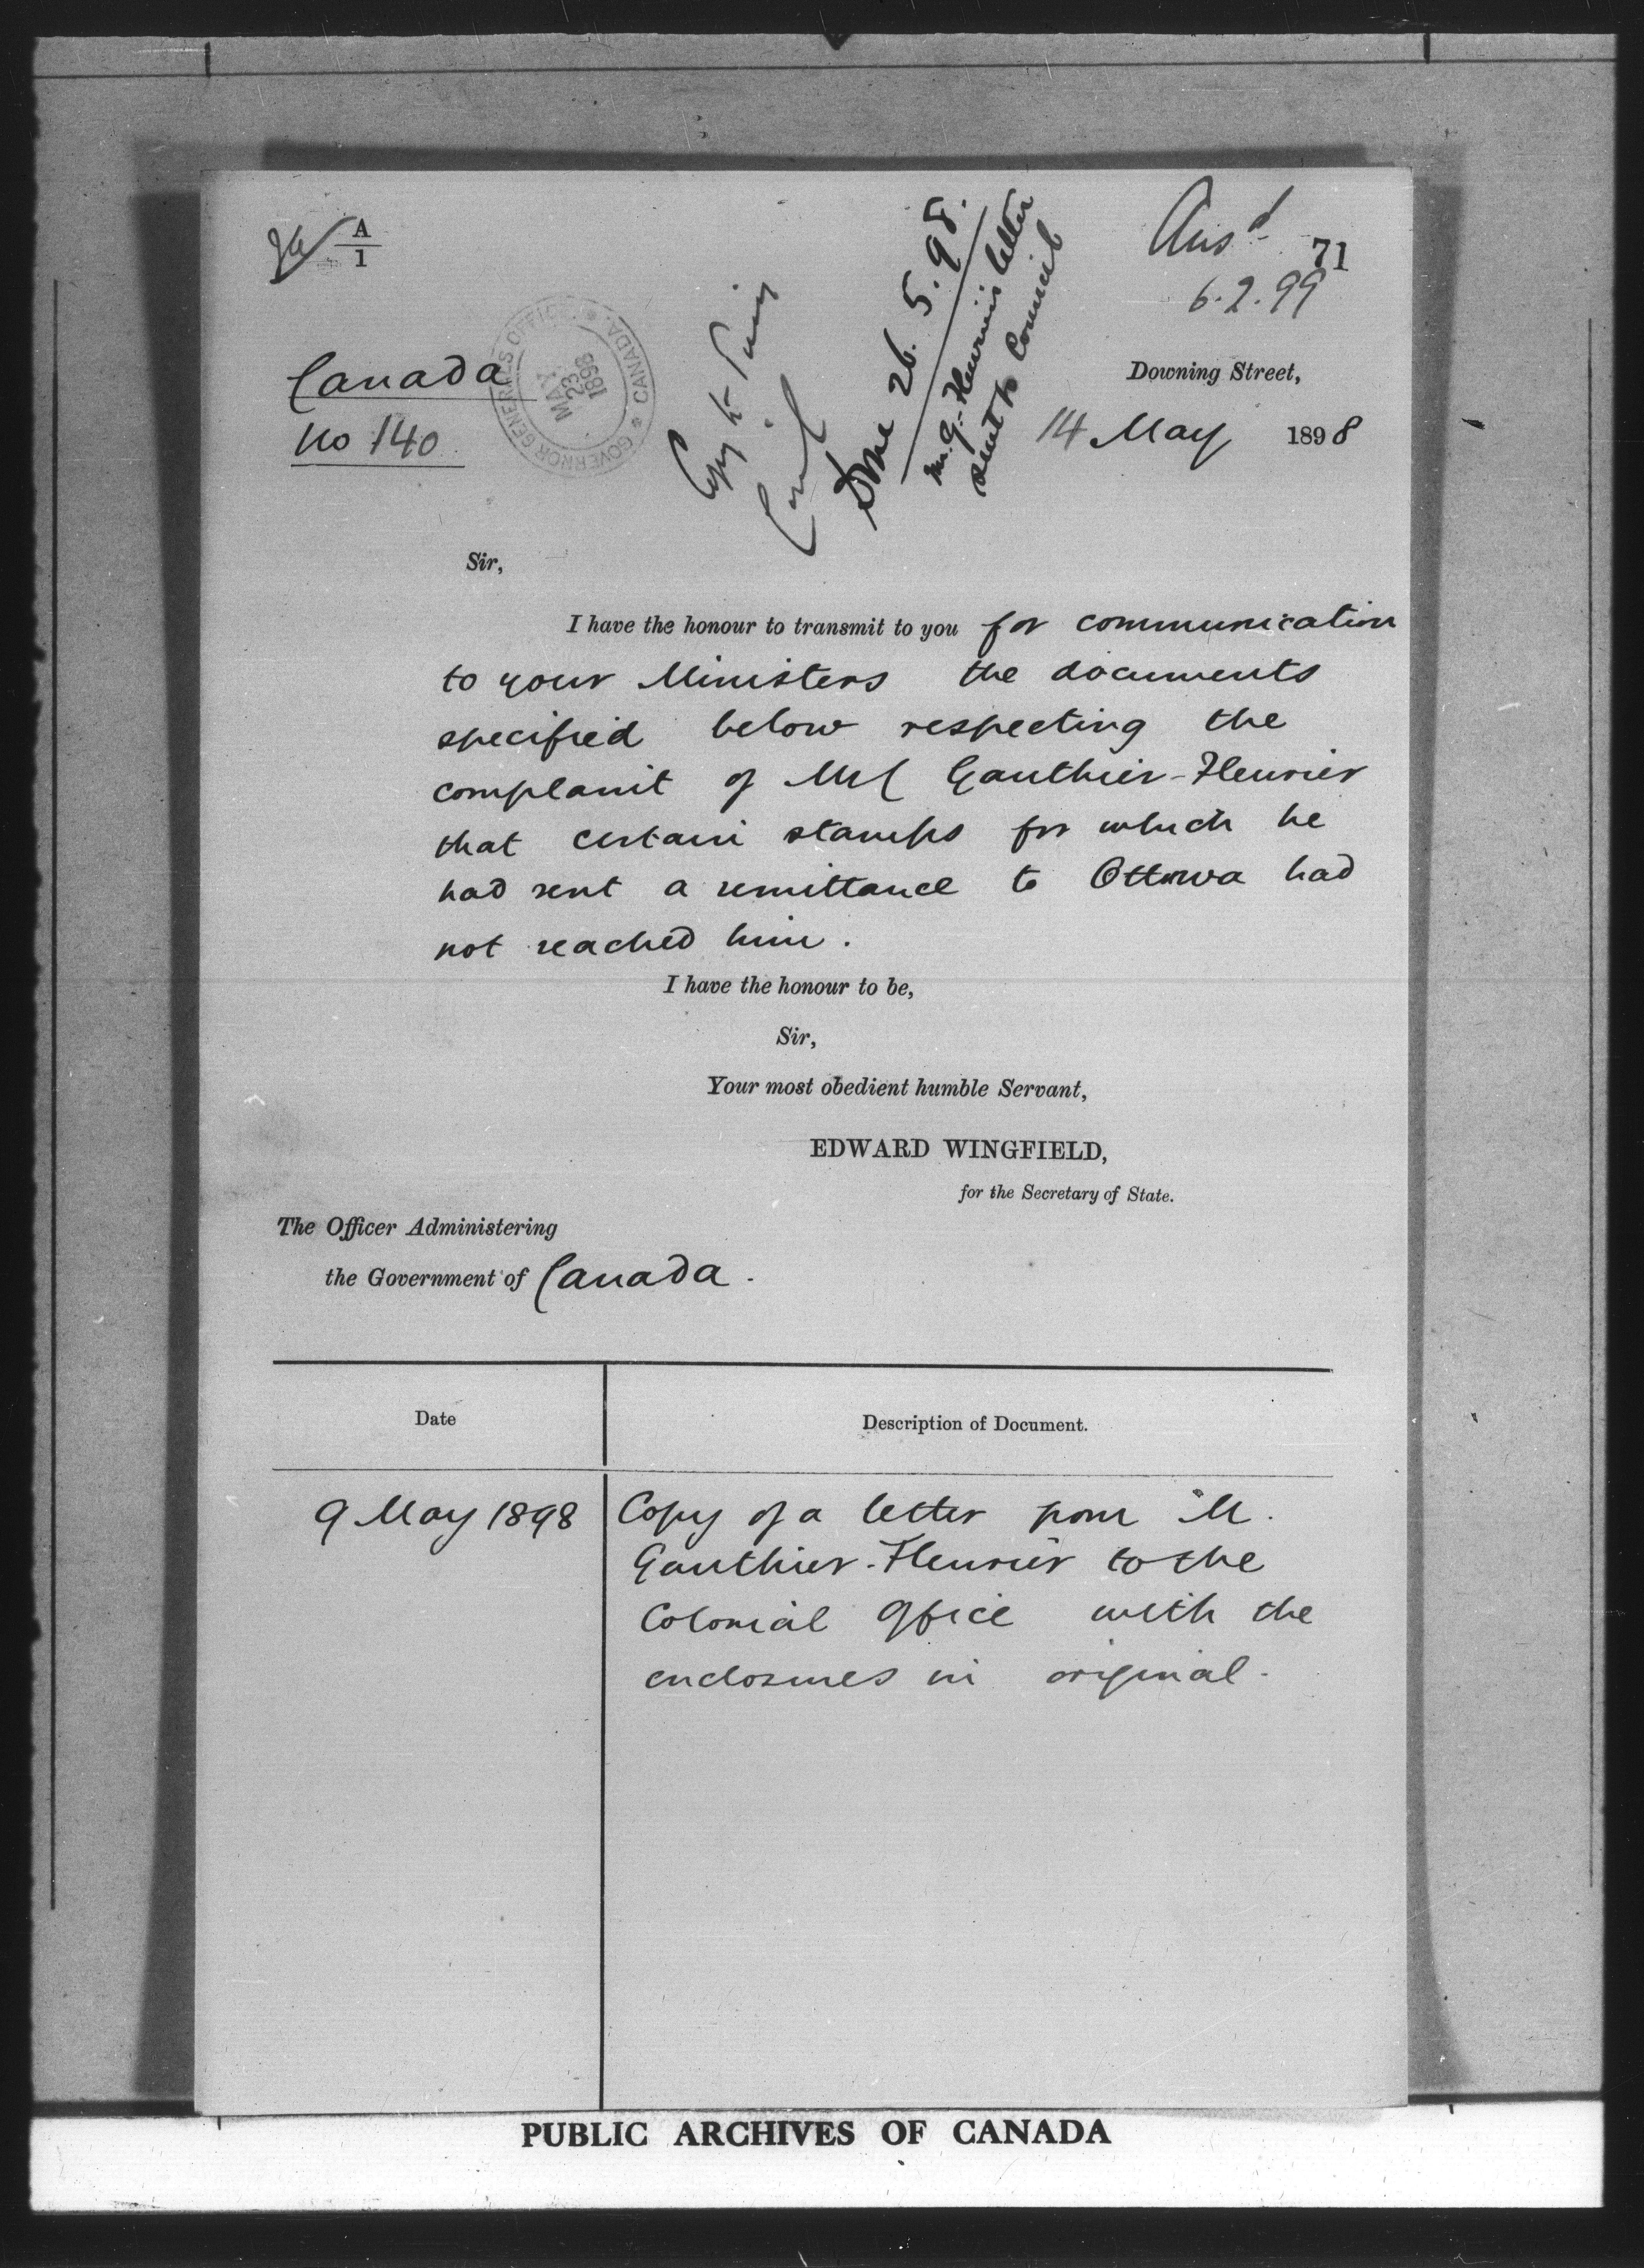 A
1
Ansd 71
6.2.99
GOVERNOR GENERAL'S OFFICE * CANADA *
MAY
23
1898
Copy to Privy
Council
Done 26.5.98.
M. G. Fleurier's letter
sent to Council
Canada
No 140
Downing Street,
14 May 1898
Sir,
I have the honour to transmit to you for communication
to your Ministers the documents
specified below respecting the
complaint of Gauthier-Fleurier
that certain stamps for which he
had sent a remittance to Ottawa had
not reached him.
I have the honour to be,
Sir,
Your most obedient humble Servant,
EDWARD WINGFIELD,
for the Secretary of State.
The Officer Administering
the Government of Canada.
Date
Description of Document.
9 May 1898
Copy of a letter from M.
Gauthier-Fleurier to the
Colonial Office with the
enclosures in original.
PUBLIC ARCHIVES OF CANADA